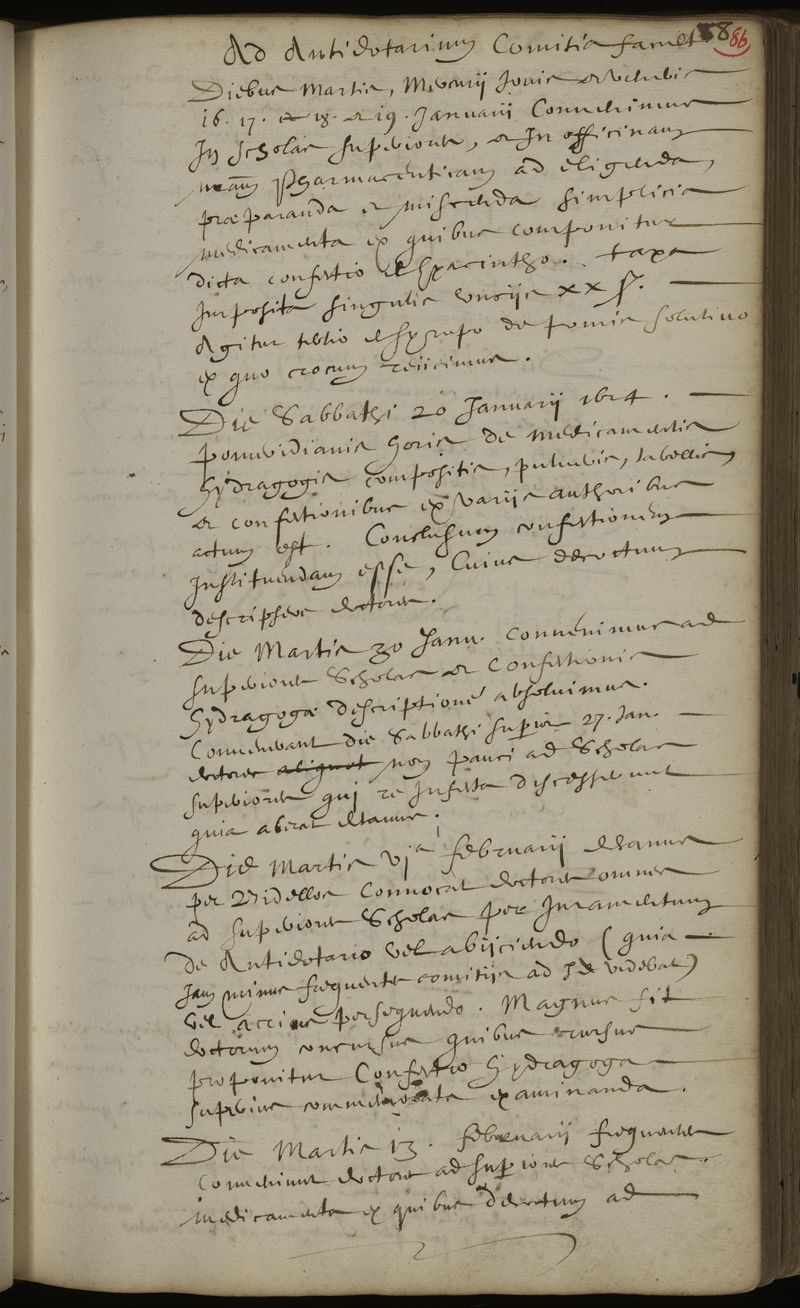 88 86
Ad Antidotarium Comitia
Diebus Martis, Mercurij Jovis et veneris
16. 17. et 18. et 19. Januarii Convenimus
In Scholas superiores, et In officinam
Pharmaceuticam ad eligenda,
præparanda et miscenda simplicia
medicamenta ex quibus componitur
dicta confectio de Hyacintho. taxa
Imposita singulis uncijs xx ß.
Agitur tertio de Syrupo de pomis solutivo
ex quo crocum reiicimus.
Die Sabbathi 20 Januarij 1624.
pomeridianis horis de medicamentis
hydragogis compositis, pulveris, tabellis,
et confectionibus ex varijs authoribus
actum est. Conclusum confectionem
Instituendam esse, Cuius decoctum
descripsere doctores.
Die Martis 30 Janu. convenimus ad
superiores Scholas et Confectionis
hydragogæ descriptionē absolvimus.
Convenerant die Sabbathi superiori 27. Jan.
doctores aliquot non pauci ad Scholas
superiores qui re Infecta discesserunt
quia aberat decanus.
Die Martis vjᵃ februarij decanus
per Bidellos Convocat doctores omnes
ad superiores Scholas per Juramentum
de Antidotario vel abijciendo (quia
Jam minus frequentes comitijs ad Id videbat)
vel acrius persequendo. Magnus fit
doctorum concursus quibus rursus
proponitur Confectio hydragoga
superius commemorata examinanda.
Die Martis 13. februarij frequentes
Conveniunt doctores ad superiores Scholas.
medicamenta ex quibus decoctum ad